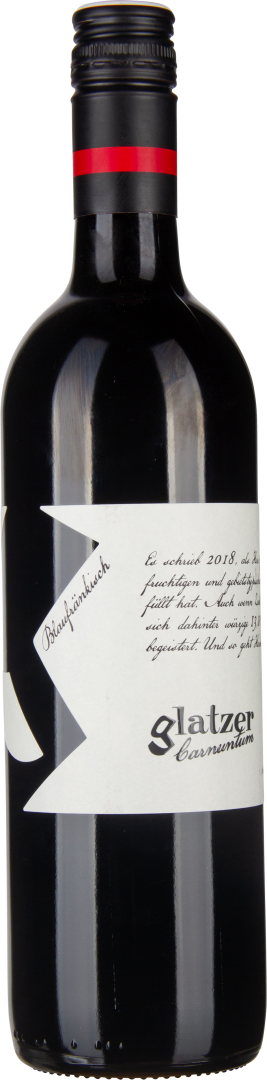 Blaufränkisch
Es schrieb 2018, als
fruchtigen und
füllt hat. Auch wenn
sich dahinter würzige 13
begeistert. Und so geht
glatzer
Carnuntum